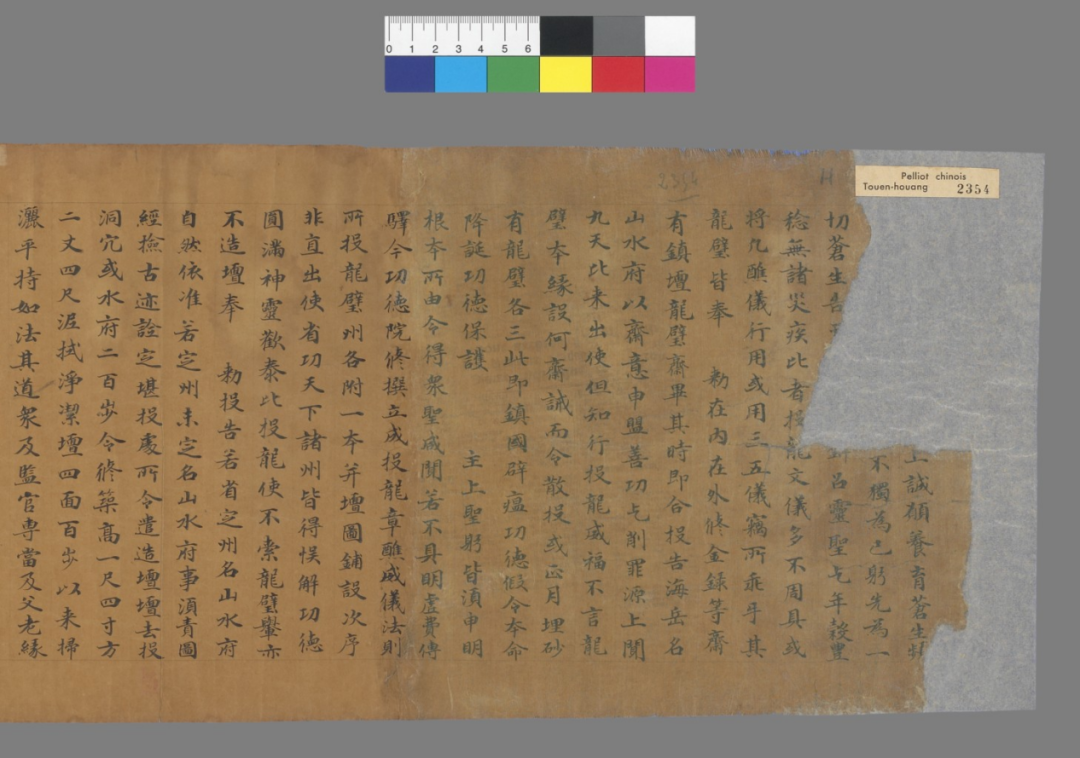 0 1 2 3 4 5 6
Pelliot chinois
Touen-houang 2354
2354
上誠願養育蒼生
不獨為己躬先為一
切蒼生告 呂靈聖乞年穀豊
稔無諸災疾比者投龍文儀多不周具或
將九醮儀行用或用三五儀竊所乖乎其
龍璧皆奉 勑在內在外修金錄等齋
有鎮壇龍璧齋畢其時即合投告海岳名
山水府以齋意申盟善功乞削罪源上聞
九天比来出使但知行投龍威福不言龍
璧本緣設何齋誡而令散投或正月埋砂
有龍璧各三此即鎮國辟瘟功德假令本命
降誕功德保護 主上聖躬皆須申明
根本所由令得衆聖咸聞若不具明虛費傳
驛今功德院修撰立成投龍章醮威儀法則
所投龍璧州各附一本并壇圖鋪設次序
非直出使省功天下諸州皆得悮解功德
圓滿神靈歡泰比投龍使不索龍璧轝亦
不造壇奉 勑投告若省定州名山水府
自然依准若定州未定名山水府事須責圖
經撿古迹詮定堪投處所令遣造壇壇去投
洞穴或水府二百步令修築高一尺四寸方
二丈四尺泥拭淨潔壇四面百步以来掃
灑平持如法其道衆及監官専當及父老緣